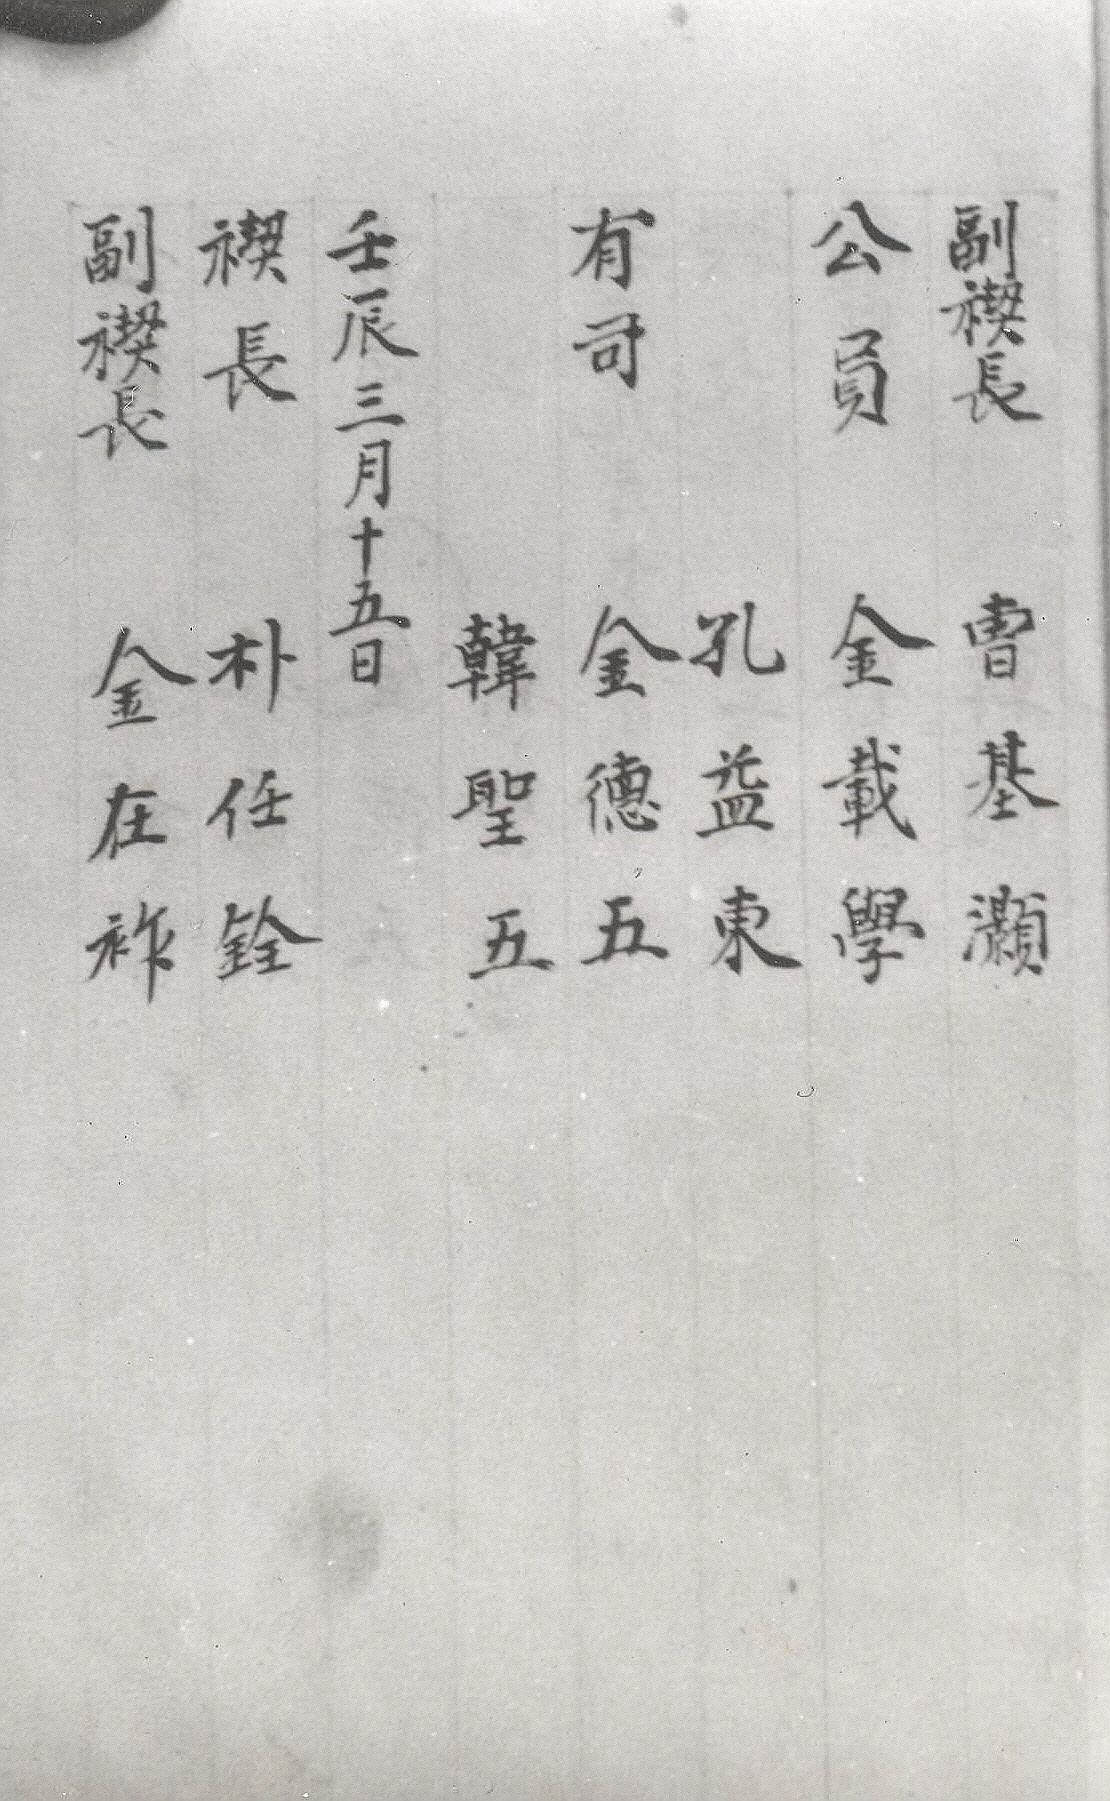 副禊長 曺基灝
公員 金載學
孔益東
有司 金德五
韓聖五
壬辰三月十五日
禊長 朴任銓
副禊長 金在祚